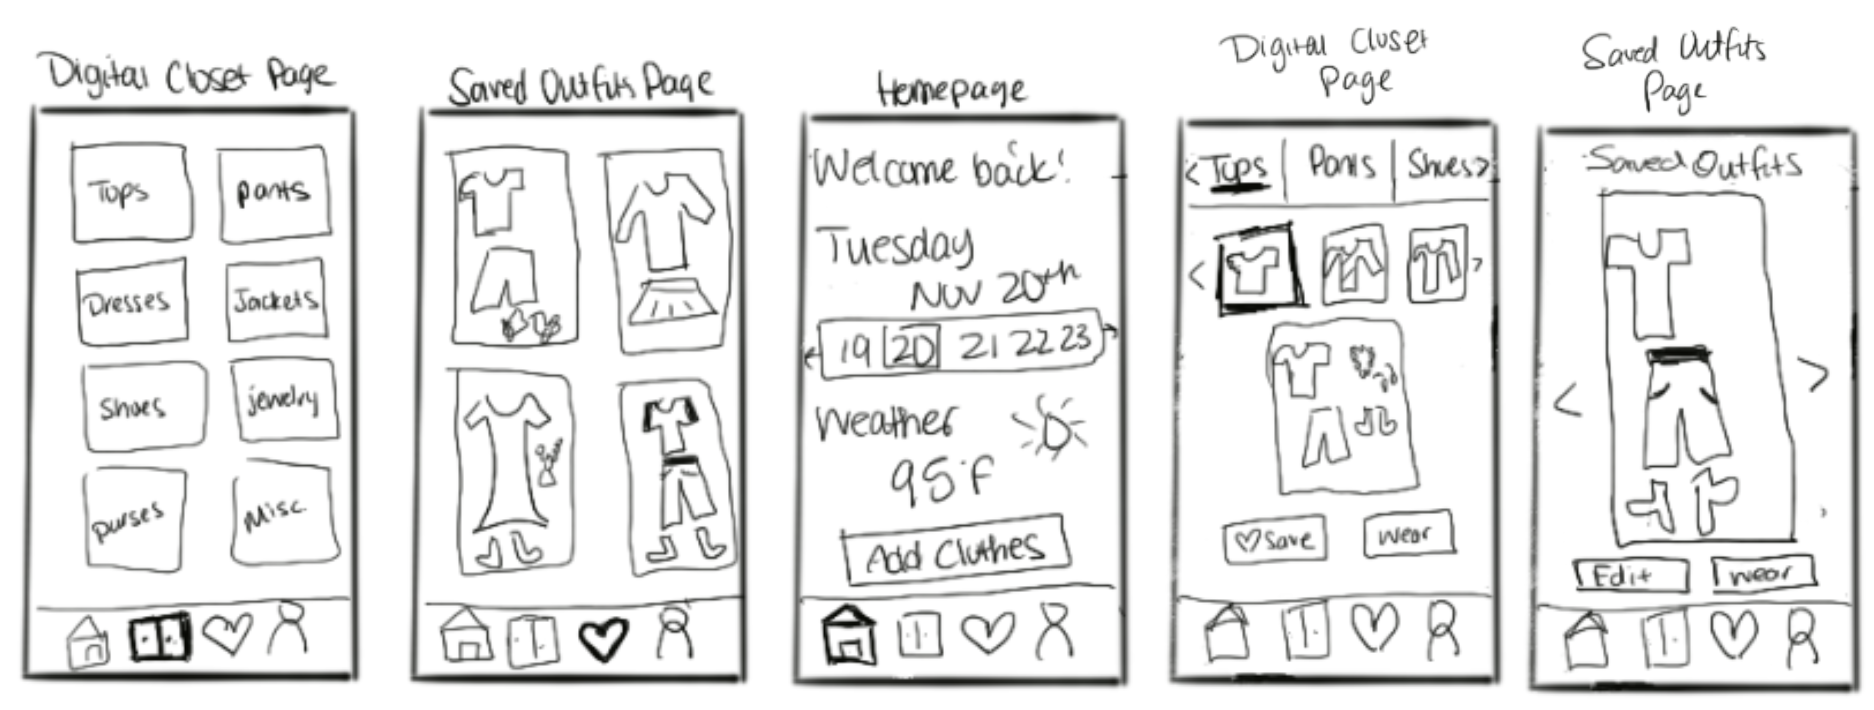 Digital Closet Page
Tops
Pants
Dresses
Jackets
Shoes
jewelry
purses
Misc.
Saved Outfits Page
Homepage
Welcome back!
Tuesday
Nov 20th
19 20 21 22 23
Weather
95°F
Add Clothes
Digital Closet
Page
< Tops | Pants | Shoes >
< >
♡ Save
Wear
Saved Outfits
Page
Saved Outfits
< >
Edit
Wear